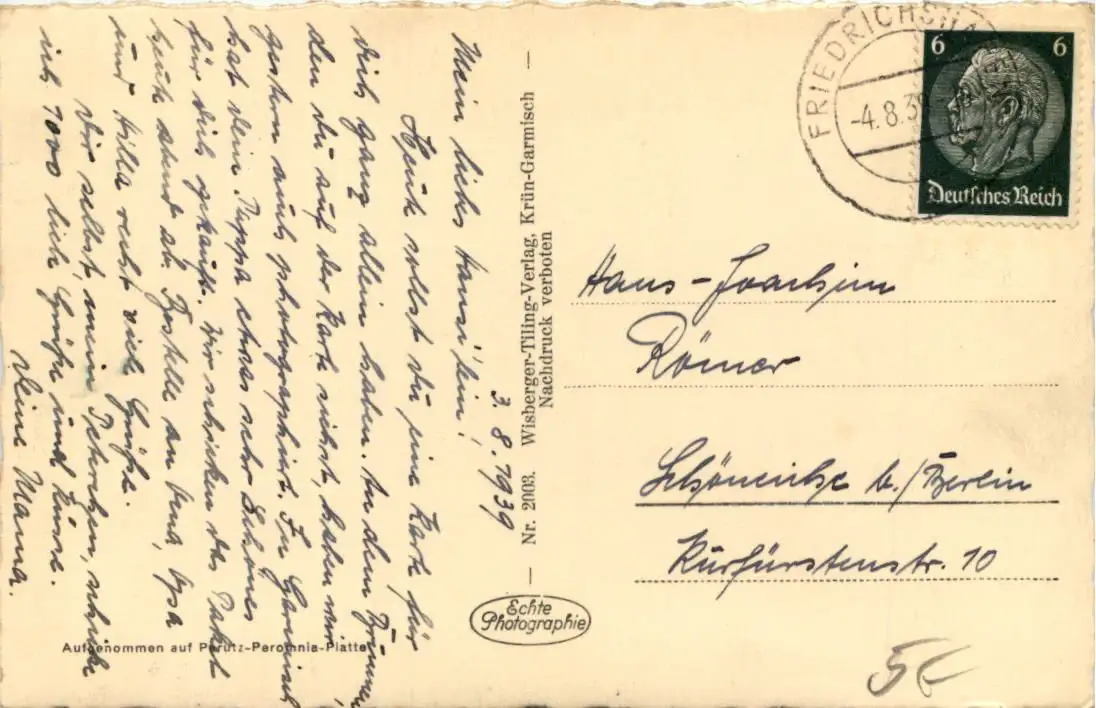 3. 8. 1939
Mein liebes Hansi'lein!
Heute sollst du eine Karte für
dich ganz allein haben. An dem Brunnen,
den du auf der Karte siehst, haben wir
gestern noch photographiert. In Garmisch
hat dein Pappa etwas sehr Schönes
für dich gekauft. Wir schicken das Paket
heute abend ab. Bestelle an Vena,
und Hilla recht viele Grüße.
Dir selbst, mein Peterchen, schicke
ich 1000 liebe Grüße und Küsse.
Deine Mama.
Nr. 2003. Wisberger-Tiling-Verlag, Krün-Garmisch
Nachdruck verboten
Echte
Photographie
Aufgenommen auf Perutz-Peromnia-Platte
FRIEDRICHSHA
-4.8.39
6 6
Deutsches Reich
Hans-Joachim
Römer
Schöneiche b./Berlin
Kurfürstenstr. 10
5€